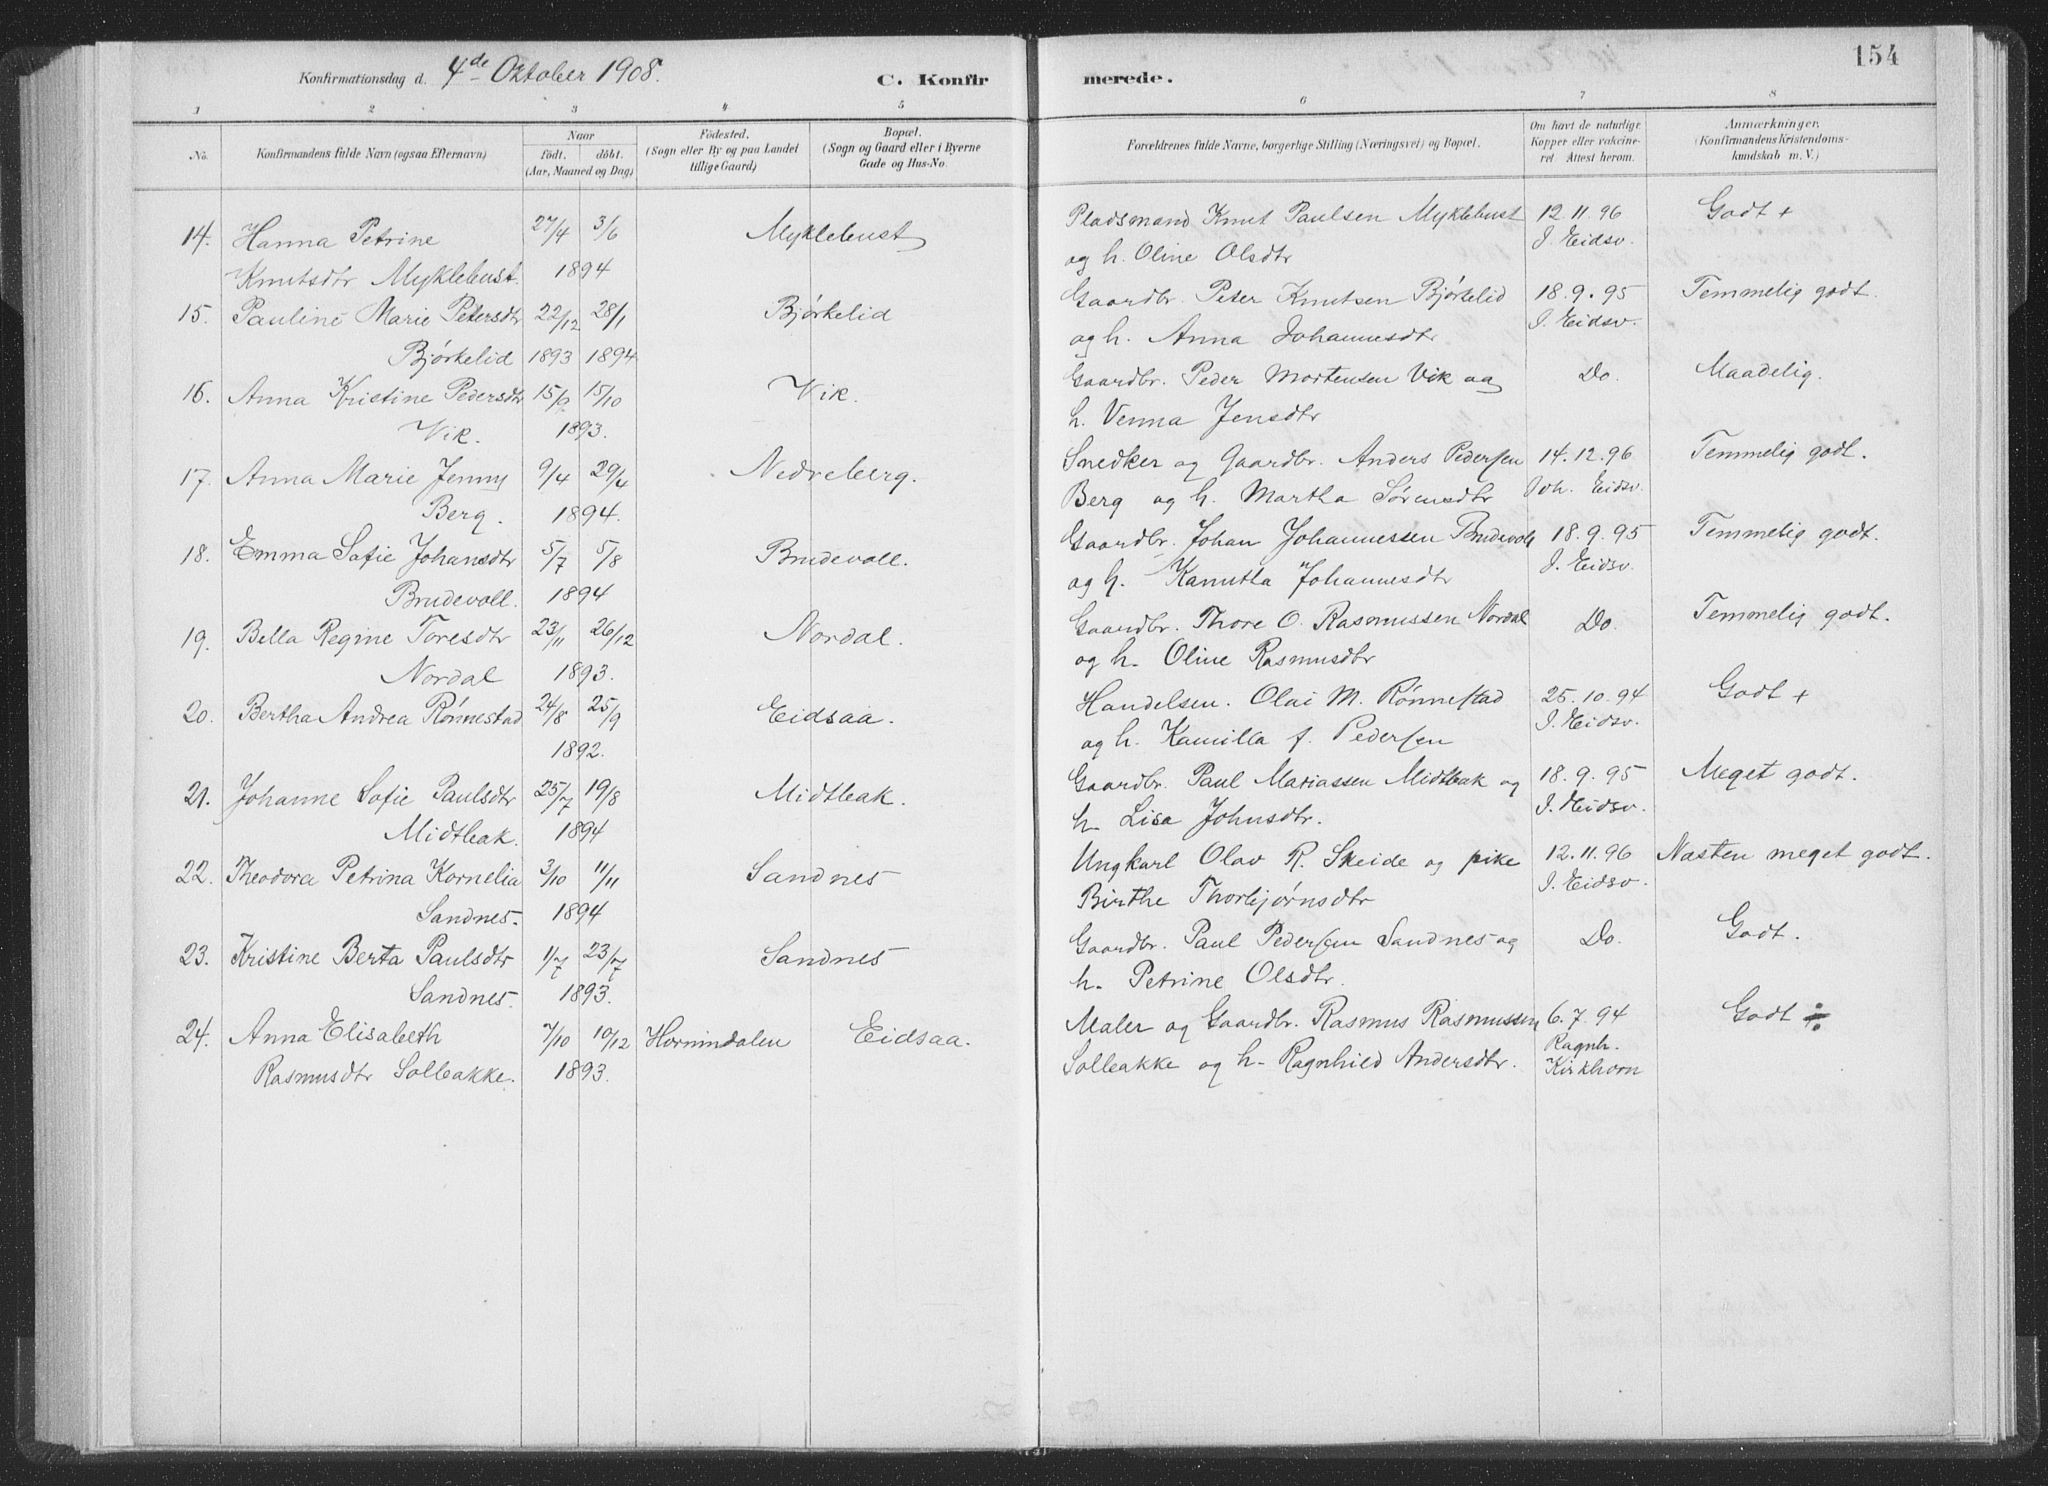 154
Konfirmationsdag d. 4de Oktober 1908. C. Konfirmerede.
1 2 3 4 5 6 7 8
No. Konfirmandens fulde Navn (ogsaa Efternavn) Naar födt. döbt. (Aar, Maaned og Dag) Födested. (Sogn eller By og paa Landet tillige Gaard) Bopæl. (Sogn og Gaard eller i Byerne Gade og Hus-No. Forældrenes fulde Navne, borgerlige Stilling (Næringsvei) og Bopæl. Om havt de naturlige Kopper eller vakcineret Attest herom. Anmærkninger. (Konfirmandens Kristendomskundskab m. V.)
14. Hanna Petrine 27/4 3/6 Myklebust Pladsmand Knut Paulsen Myklebust 12.11.96 Godt +
Knutsdtr Myklebust. 1894 og h. Oline Olsdtr J. Eidsv.
15. Pauline Marie Petersdtr 22/12 28/1 Bjørkelid Gaardbr. Peter Knutsen Bjørkelid 18.9.95 Temmelig godt.
Bjørkelid 1893 1894 og h. Anna Johannesdtr J. Eidsv.
16. Anna Kristine Pedersdtr 15/9 15/10 Vik. Gaardbr. Peder Mortensen Vik og Do. Maadelig.
Vik. 1893. h. Venna Jensdtr
17. Anna Marie Jenny 9/4 29/4 Nedreberg. Snedker og Gaardbr. Anders Pedersen 14.12.96 Temmelig godt.
Berg. 1894. Berg og h. Martha Sørensdtr Joh. Eidsv.
18. Emma Sofie Johansdtr 5/7 5/8 Brudevoll. Gaardbr. Johan Johannessen Brudevoll 18.9.95 Temmelig godt.
Brudevoll. 1894 og h. Kanutta Johannesdtr J. Eidsv.
19. Bella Regine Toresdtr 23/11 26/12 Nordal. Gaardbr. Thore O. Rasmussen Nordal Do. Temmelig godt.
Nordal 1893. og h. Oline Rasmusdtr
20. Bertha Andrea Rönnestad 24/8 25/9 Eidsaa. Handelsm. Olai M. Rønnestad 25.10.94 Godt +
1892. og h. Kamilla f. Pedersen J. Eidsv.
21. Johanne Sofie Paulsdtr 25/7 19/8 Midtbak. Gaardbr. Paul Mariassen Midtbak og 18.9.95 Meget godt.
Midtbak. 1894 h. Lisa Johnsdtr. J. Eidsv.
22. Theodora Petrina Kornelia 3/10 11/11 Sandnes Ungkarl Olav R. Skeide og pike 12.11.96 Næsten meget godt.
Sandnes. 1894 Birthe Thorbjørnsdtr J. Eidsv.
23. Kristine Berta Paulsdtr 1/7 23/7 Sandnes Gaardbr. Paul Pedersen Sandnes og Do. Godt.
Sandnes. 1893. h. Petrine Olsdtr.
24. Anna Elisabeth 7/10 10/12 Hornindalen Eidsaa. Maler og Gaardbr. Rasmus Rasmussen 6.7.94 Godt ÷.
Rasmusdtr Solbakke. 1893. Solbakke og h. Ragnhild Andersdtr. Ragnh. Kirkhorn